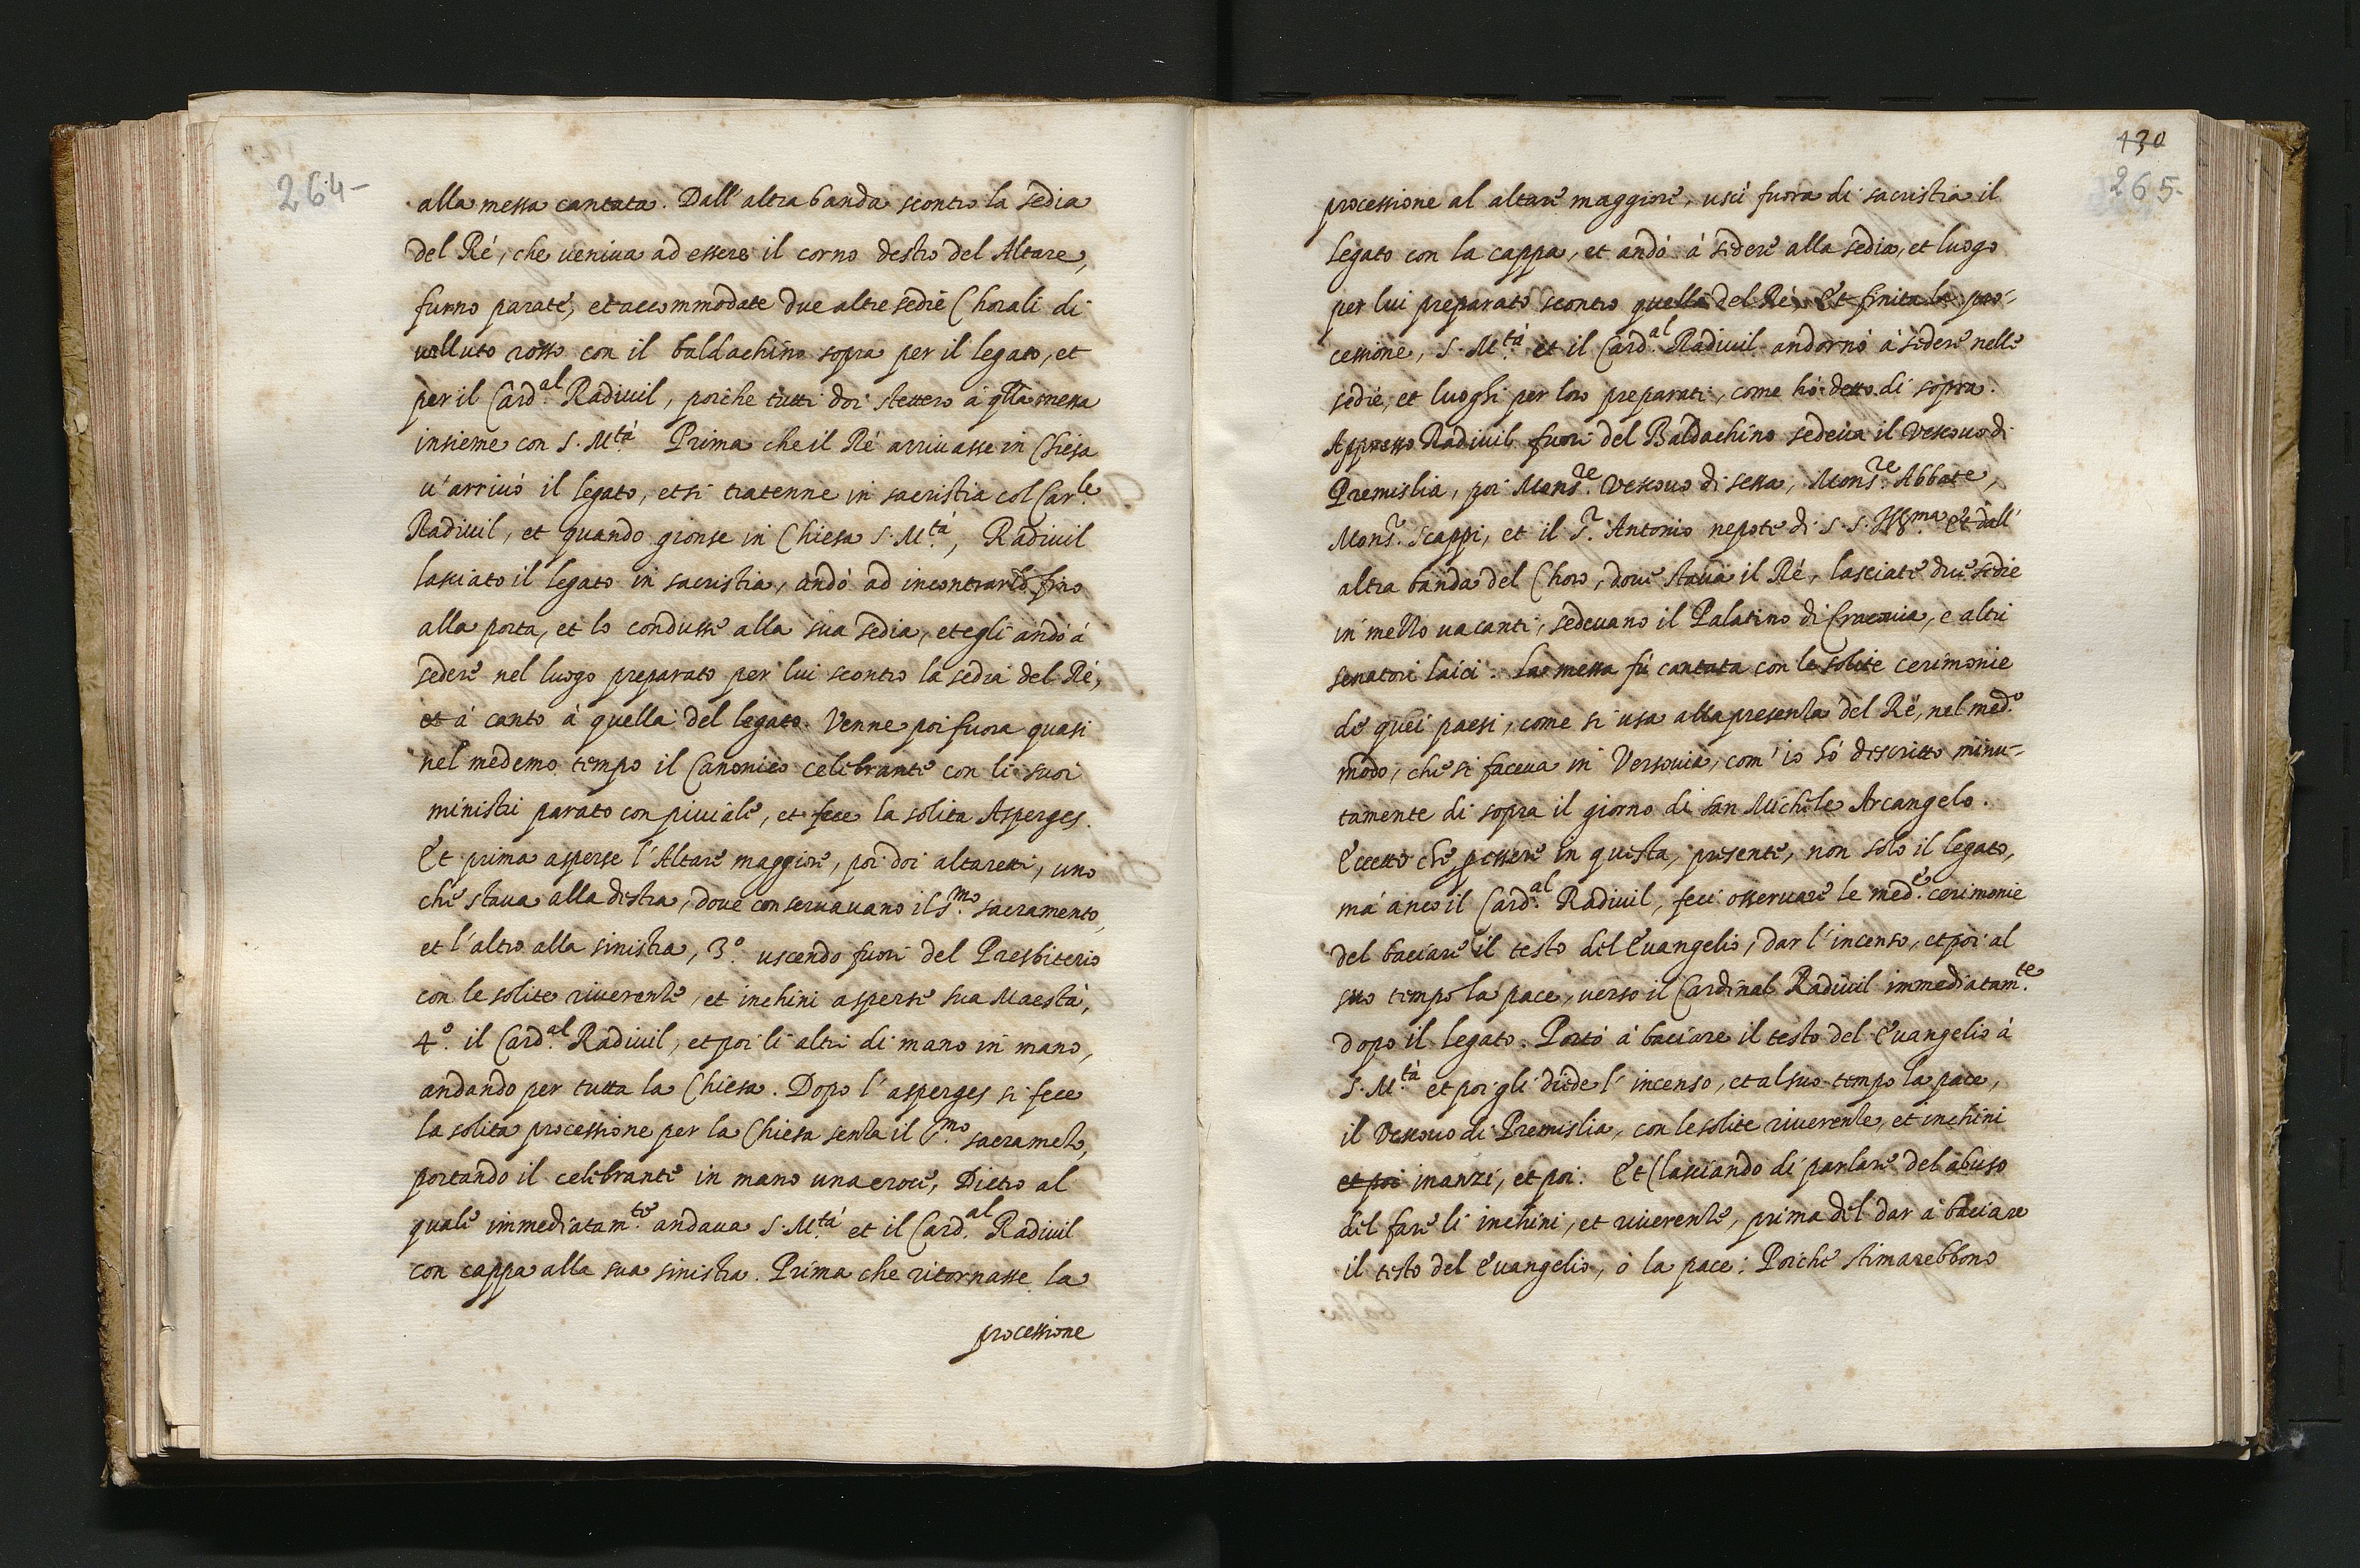 264-
alla messa cantata. Dall' altra banda scontro la sedia
del Ré, che ueniua ad essere il corno destro del Altare,
furno parate, et accommodate due altre sedie Chorali di
uelluto rosso con il baldachino sopra per il legato, et
per il Card.al Radiuil, poiche tutti doi stettero à qlla messa
insieme con S. M.tà Prima che il Ré arriuasse in Chiesa
u' arriuò il legato, et si tratenne in sacristia col Car.le
Radiuil, et quando gionse in Chiesa S. M.tà, Radiuil
lasciato il legato in sacristia, andò ad incontrarlo fino
alla porta, et lo condusse alla sua sedia, et egli andò à
sedere nel luogo preparato per lui scontro la sedia del Ré,
et à canto à quella del legato. Venne poi fuora quasi
nel medemo tempo il Canonico celebrante con li suoi
ministri parato con piuiale, et fece la solita Asperges.
Et prima asperse l' Altare maggiore, poi doi altaretti, uno
che staua alla destra, doue conseruauano il S.mo sacramento,
et l' altro alla sinistra, 3.o uscendo fuori del Presbiterio
con le solite riuerenze, et inchini asperse sua Maestà,
4.o il Card.al Radiuil, et poi li altri di mano in mano,
andando per tutta la Chiesa. Dopo l' asperges si fece
la solita processione per la Chiesa senza il S.mo sacrameto,
portando il celebrante in mano una croce, Dietro al
quale immediatam.te andaua S. M.tà et il Card.al Radiuil
con cappa alla sua sinistra. Prima che ritornasse la
processione
430
265-
processione al altare maggiore, uscì fuora di sacristia il
legato con la cappa, et andò à sedere alla sedia, et luogo
per lui preparato scontro quella del Ré, Et finita la pro-
cessione, S. M.tà et il Card.al Radiuil andorno à sedere nelle
sedie, et luoghi per loro preparati, come hò detto di sopra.
Appresso Radiuil fuori del Baldachino sedeua il Vescouo di
Premislia, poi Mons.re Vescouo di sessa, Mons.re Abbate,
Mons.r Scappi, et il S.r Antonio nepote di S. S. Ill.ma Et dall'
altra banda del Choro, doue staua il Ré, lasciate due sedie
in mezzo uacanti, sedeuano il Palatino di Cracouia, e altri
senatori laici. La messa fù cantata con le solite cerimonie
de quei paesi, come si usa alla presenza del Ré, nel med.o
modo, che si faceua in Versouia, com' io hò descritto minu-
tamente di sopra il giorno di san Michele Arcangelo.
Eccetto che p essere in questa, presente, non solo il legato,
mà anco il Card.al Radiuil, feci osseruare le med.e cerimonie
del baciare il testo del Euangelio, dar l' incenso, et poi al
suo tempo la pace, uerso il Cardinal Radiuil immediatam.te
dopo il legato. Portò à baciare il testo del Euangelio à
S. M.tà et poi gli diede l' incenso, et al suo tempo la pace,
il Vescouo di Premislia, con le solite riuerenze, et inchini
et poi inanzi, et poi. Et (lasciando di parlare del abuso
del fare li inchini, et riuerenze, prima del dar à baciare
il testo del Euangelio, ò la pace: Poiche stimarebbono